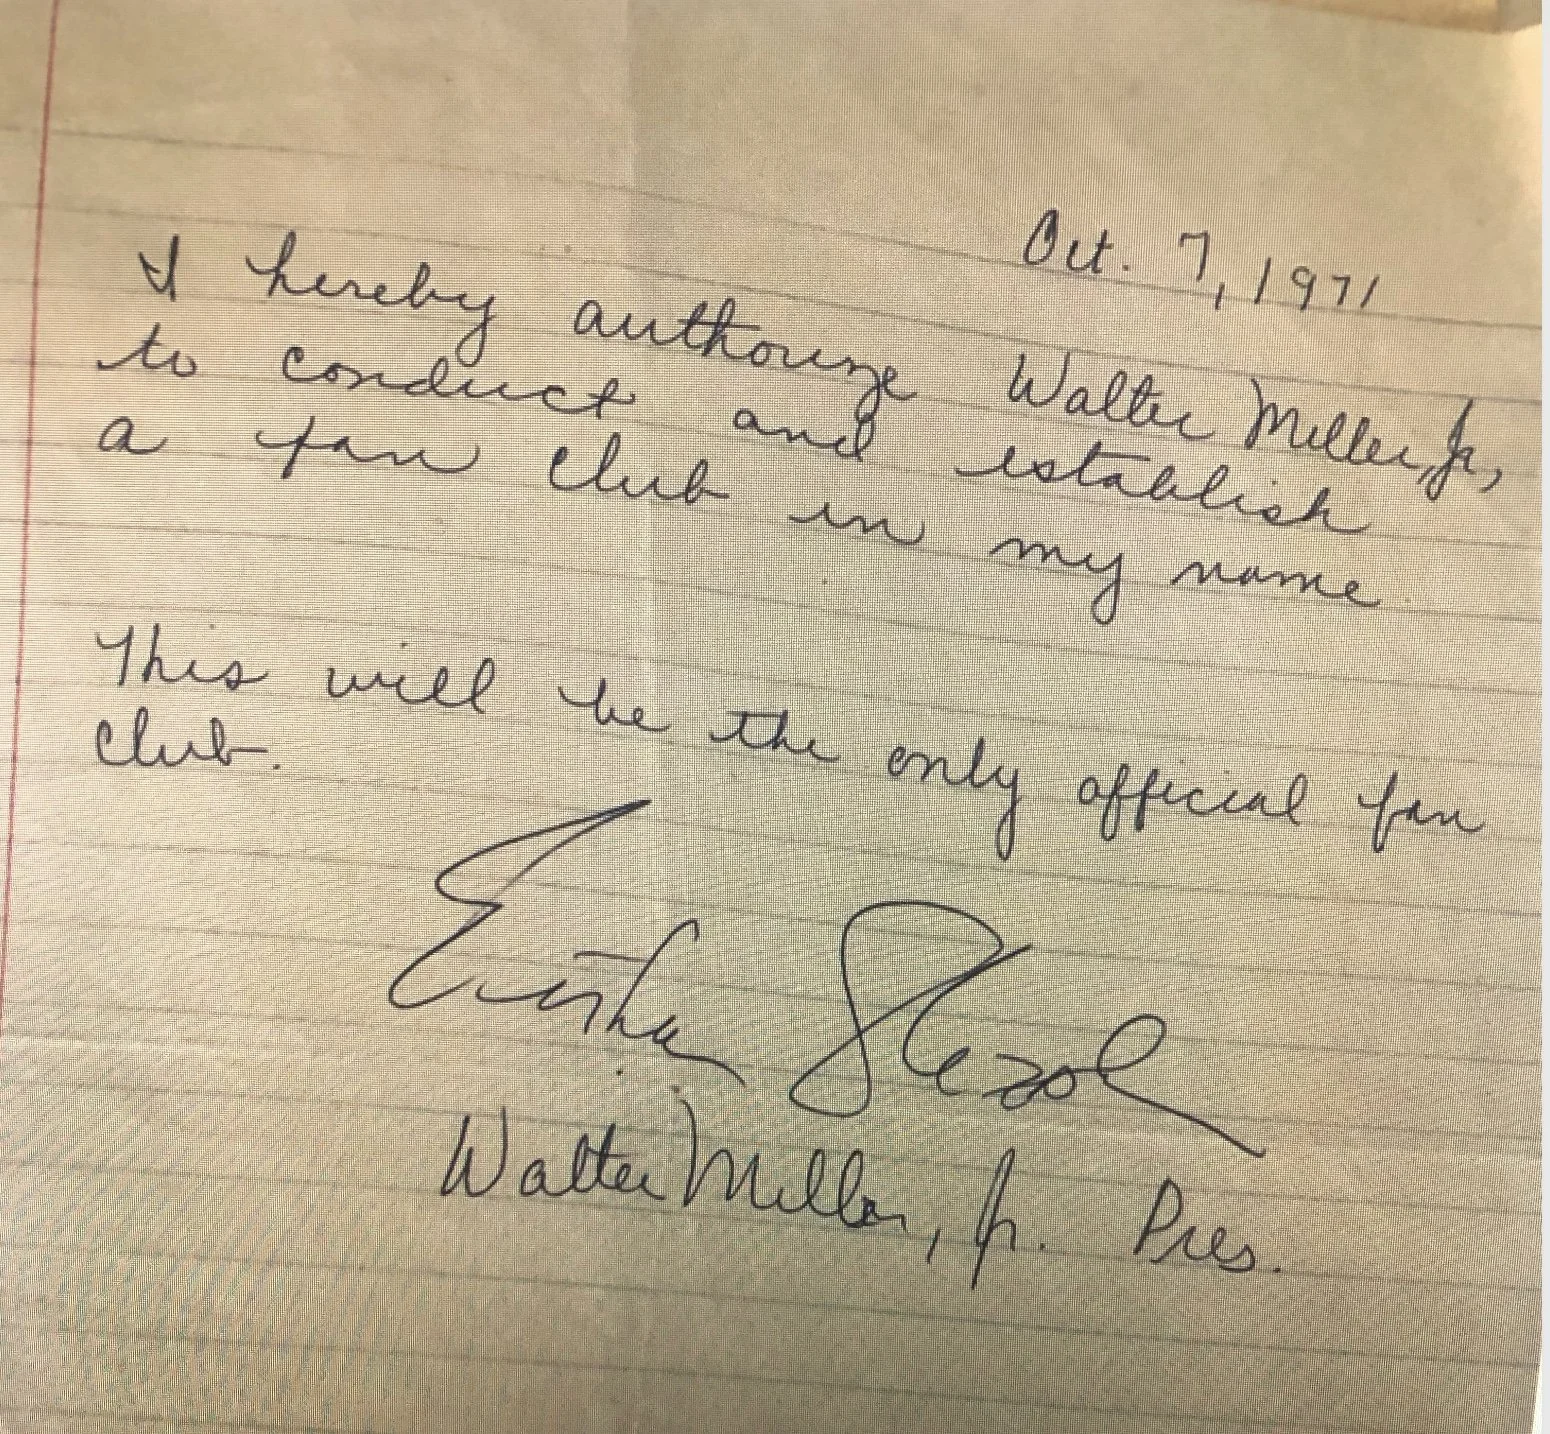 Oct. 7, 1971
I hereby authorize Walter Miller, Jr,
to conduct and establish
a fan club in my name
This will be the only official fan
club.
Erika Slezak
Walter Miller, Jr. Pres.